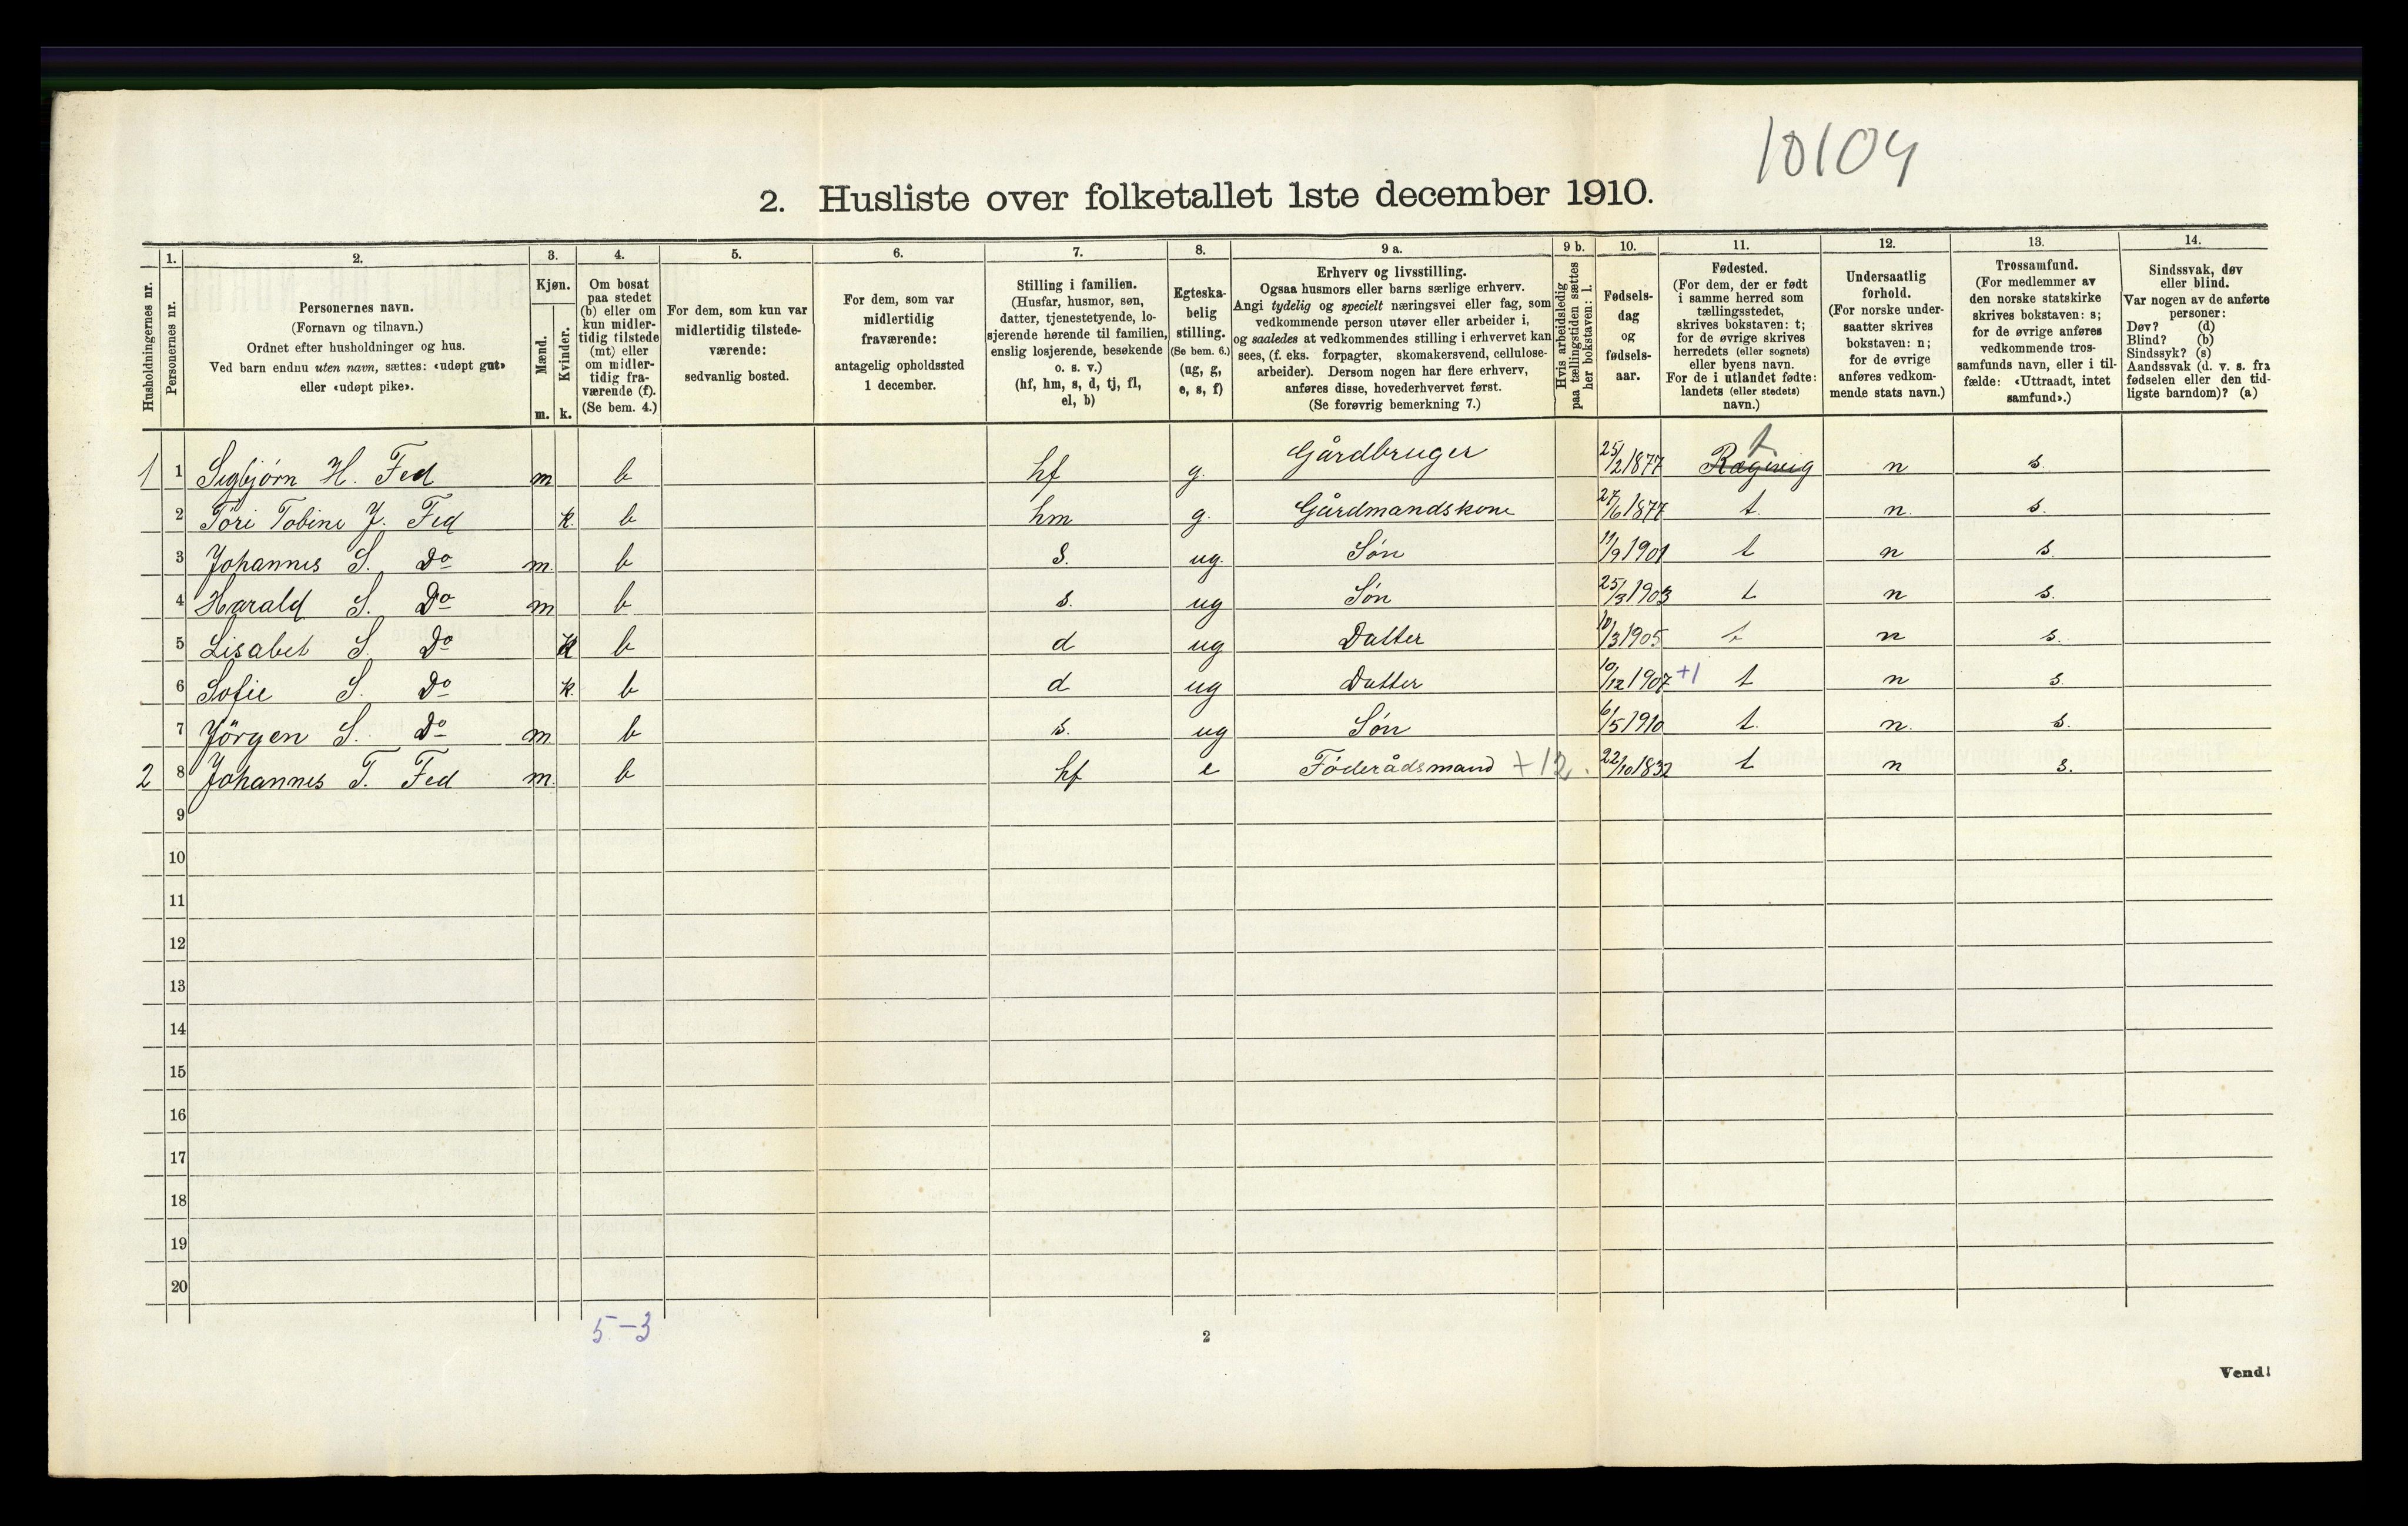 10104
2. Husliste over folketallet 1ste december 1910.
Husholdningernes nr.
1.
Personernes nr.
2.
Personernes navn.
(Fornavn og tilnavn.)
Ordnet efter husholdninger og hus.
Ved barn endnu uten navn, sættes: «udøpt gut»
eller «udøpt pike».
3.
Kjøn.
Mænd.
Kvinder.
m. k.
4.
Om bosat
paa stedet
(b) eller om
kun midler-
tidig tilstede
(mt) eller
om midler-
tidig fra-
værende (f).
(Se bem. 4.)
5.
For dem, som kun var
midlertidig tilstede-
værende:
sedvanlig bosted.
6.
For dem, som var
midlertidig
fraværende:
antagelig opholdssted
1 december.
7.
Stilling i familien.
(Husfar, husmor, søn,
datter, tjenestetyende, lo-
sjerende hørende til familien,
enslig losjerende, besøkende
o. s. v.)
(hf, hm, s, d, tj, fl,
el, b)
8.
Egteska-
belig
stilling.
(Se bem. 6.)
(ug, g,
e, s, f)
9 a.
Erhverv og livsstilling.
Ogsaa husmors eller barns særlige erhverv.
Angi tydelig og specielt næringsvei eller fag, som
vedkommende person utøver eller arbeider i,
og saaledes at vedkommendes stilling i erhvervet kan
sees, (f. eks. forpagter, skomakersvend, cellulose-
arbeider). Dersom nogen har flere erhverv,
anføres disse, hovederhvervet først.
(Se forøvrig bemerkning 7.)
9 b.
Hvis arbeidsledig
paa tællingstiden sættes
her bokstaven: l.
10.
Fødsels-
dag
og
fødsels-
aar.
11.
Fødested.
(For dem, der er født
i samme herred som
tællingsstedet,
skrives bokstaven: t;
for de øvrige skrives
herredets (eller sognets)
eller byens navn.
For de i utlandet fødte:
landets (eller stedets)
navn.)
12.
Undersaatlig
forhold.
(For norske under-
saatter skrives
bokstaven: n;
for de øvrige
anføres vedkom-
mende stats navn.)
13.
Trossamfund.
(For medlemmer av
den norske statskirke
skrives bokstaven: s;
for de øvrige anføres
vedkommende tros-
samfunds navn, eller i til-
fælde: «Uttraadt, intet
samfund».)
14.
Sindssvak, døv
eller blind.
Var nogen av de anførte
personer:
Døv? (d)
Blind? (b)
Sindssyk? (s)
Aandssvak (d. v. s. fra
fødselen eller den tid-
ligste barndom)? (a)
1 1 Sigbjørn H. Fed m b hf g. Gårdbruger 25/2 1877 t n s.
2 Tori Tobine J. Fed k b hm g. Gårdmandskone 27/6 1877 t. n. s.
3 Johannes S. Do m. b s. ug. Søn 11/9 1901 t n s.
4 Harald S. Do m b s. ug Søn 25/3 1903 t n s.
5 Lisabet S. Do k b d ug Datter 10/3 1905 t n s.
6 Sofie S. Do k. b d ug Datter 10/12 1907 +1 t n s.
7 Jörgen S. Do m b s. ug Søn 6/5 1910 t. n. s.
2 8 Johannes T. Fed m. b hf e Föderådsmand +12. 22/10 1832 t n s.
9
10
11
12
13
14
15
16
17
18
19
20
5-3
2
Vend!